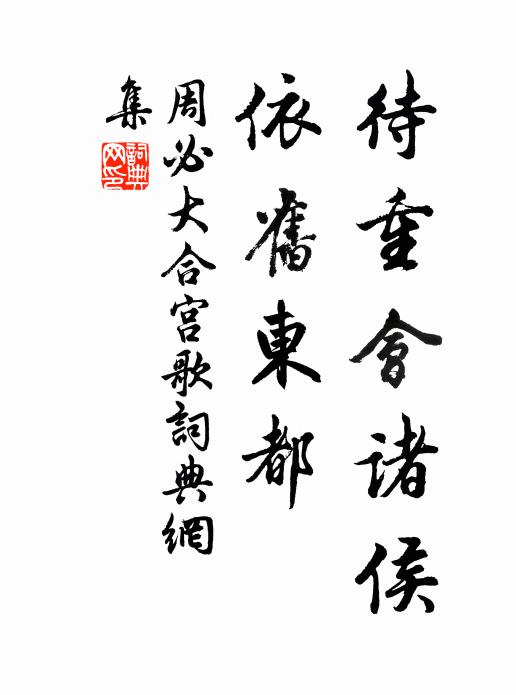 待重會諸侯
依舊東都
周必大合宮歌詞典網
集
詞典
网印